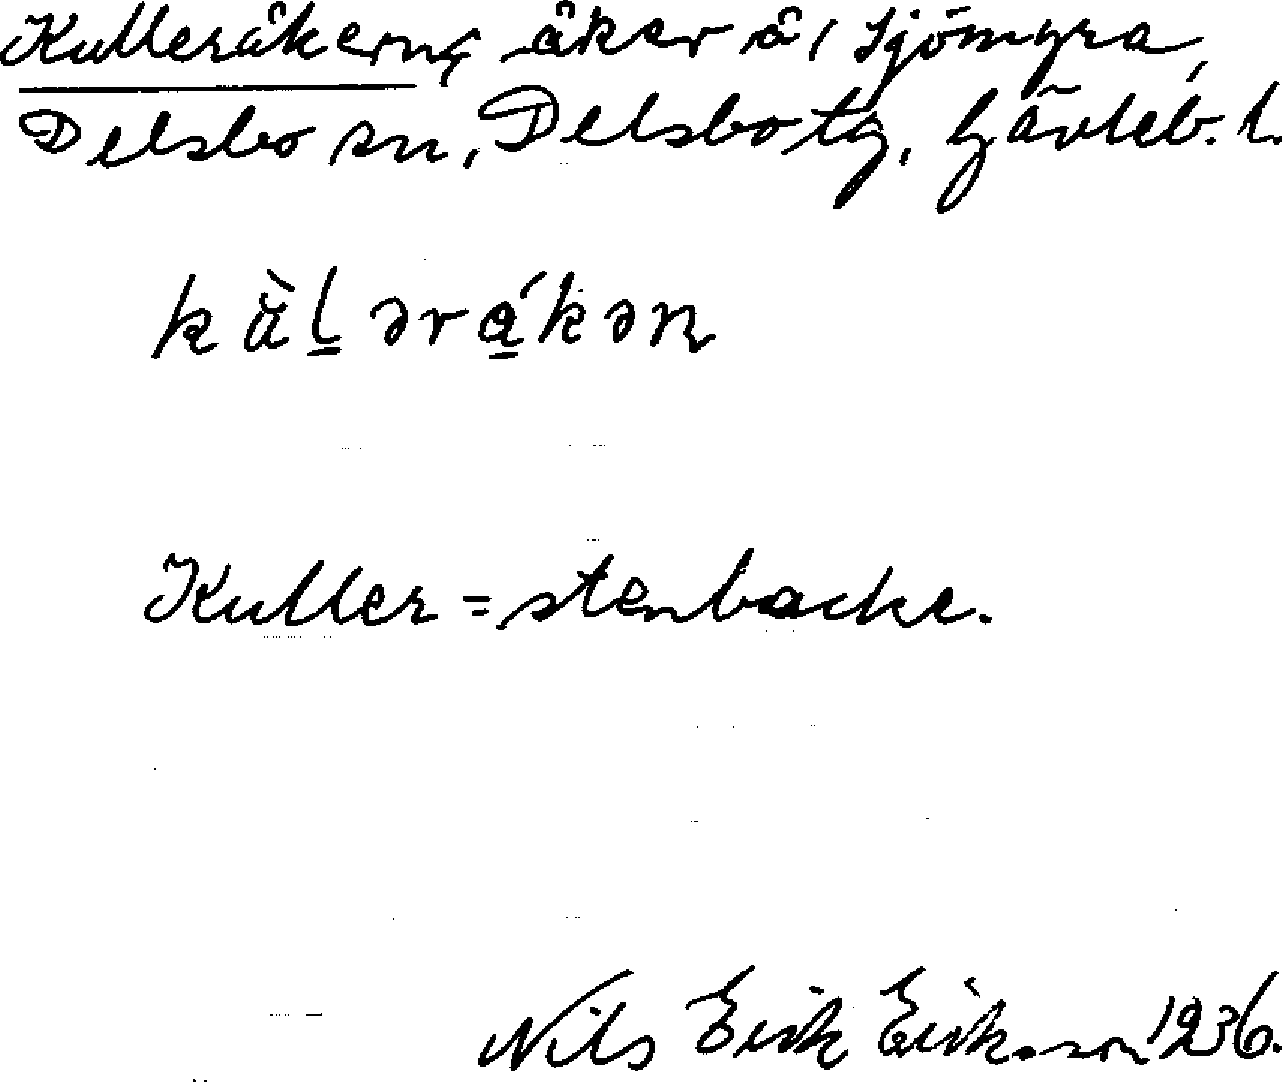 Kulleråkern, åker å, Sjömyra,
Delsbo sn, Delsbo tg, Gävleb. l.
kä̀l̠ərá̠kən
Kuller = stenbacke.
Nils Erik Eriksson 1936.